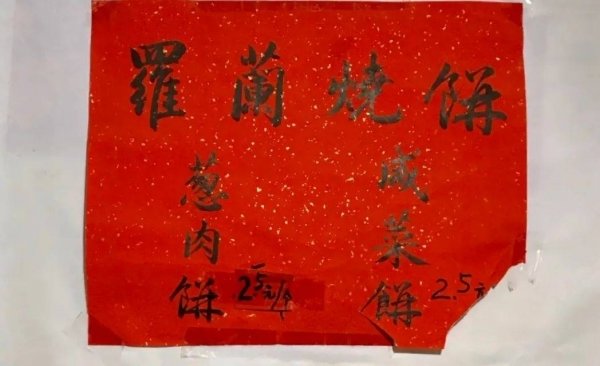 羅蘭燒餅
咸菜餅 2.5元
葱肉餅 2.5元/个